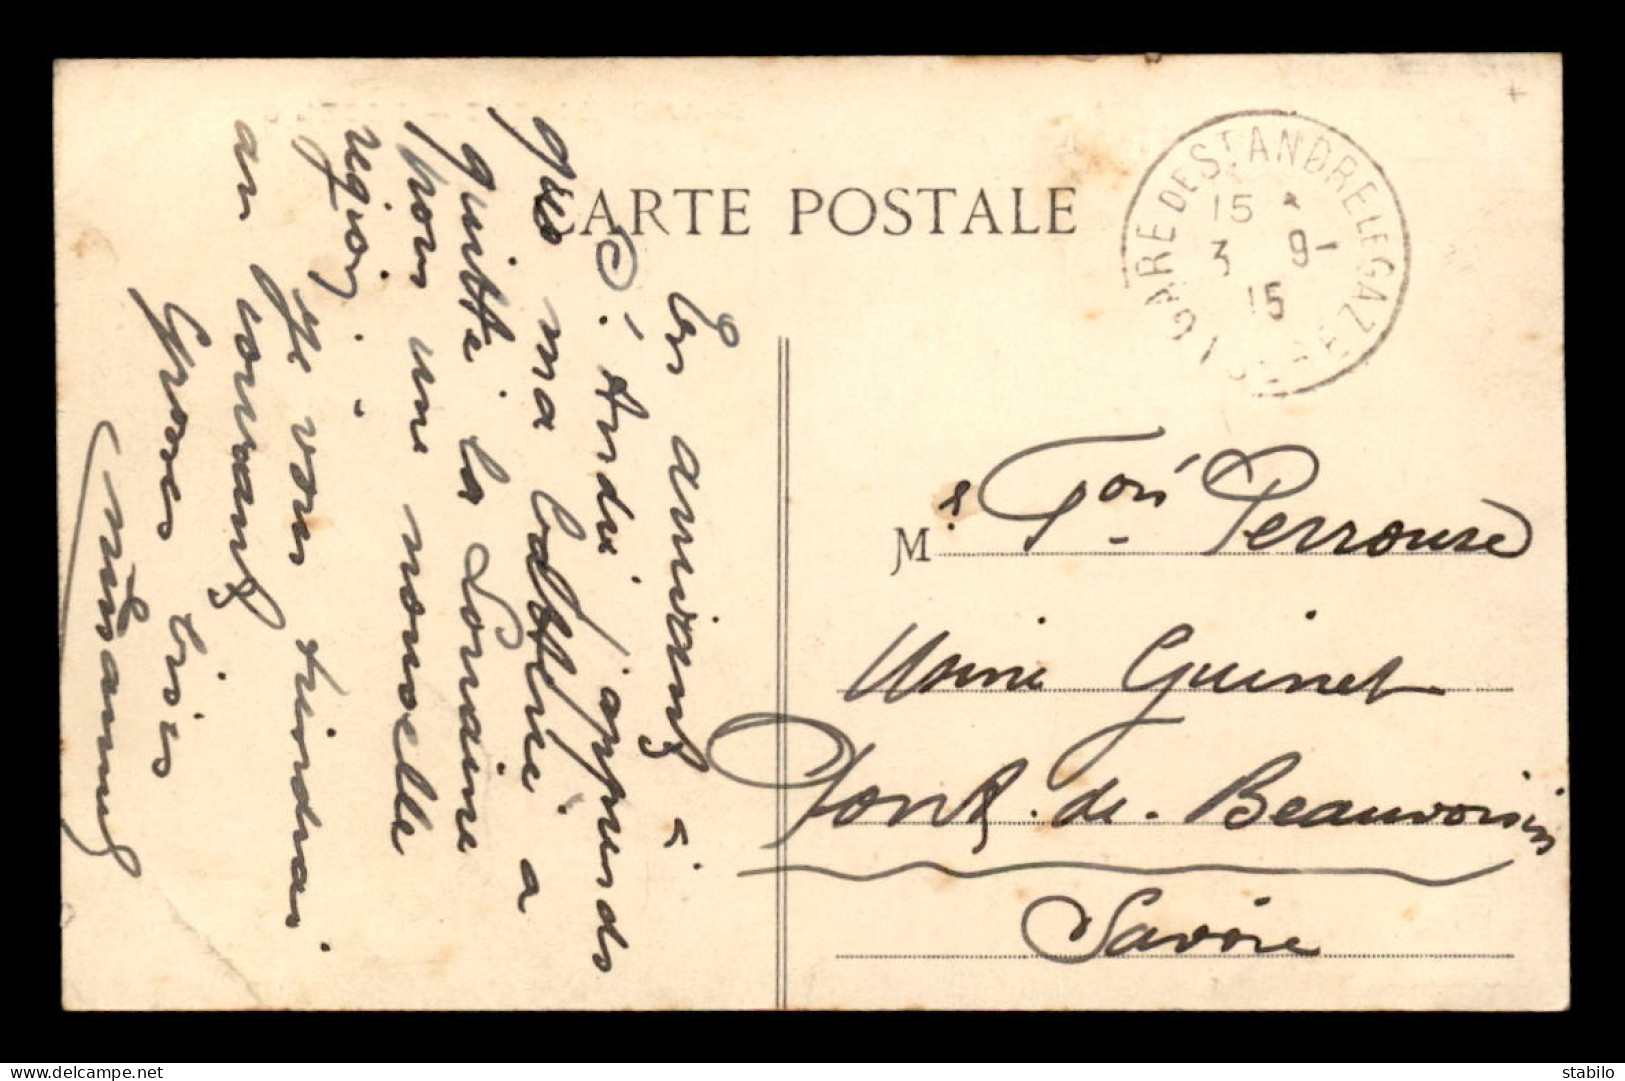 CARTE POSTALE
GARE DE ST ANDRE LE GAZ
15 *
3 9-
15
ISERE
M.r Fois Perrouse
Usine Guinet
Pont-de-Beauvoisin
Savoie
En arrivant à
St. André j'apprends
que ma batterie a
quitté la Lorraine
pour une nouvelle
région.
Je vous tiendrai
au courant
Grosses bises
stabilo
delcampe.net